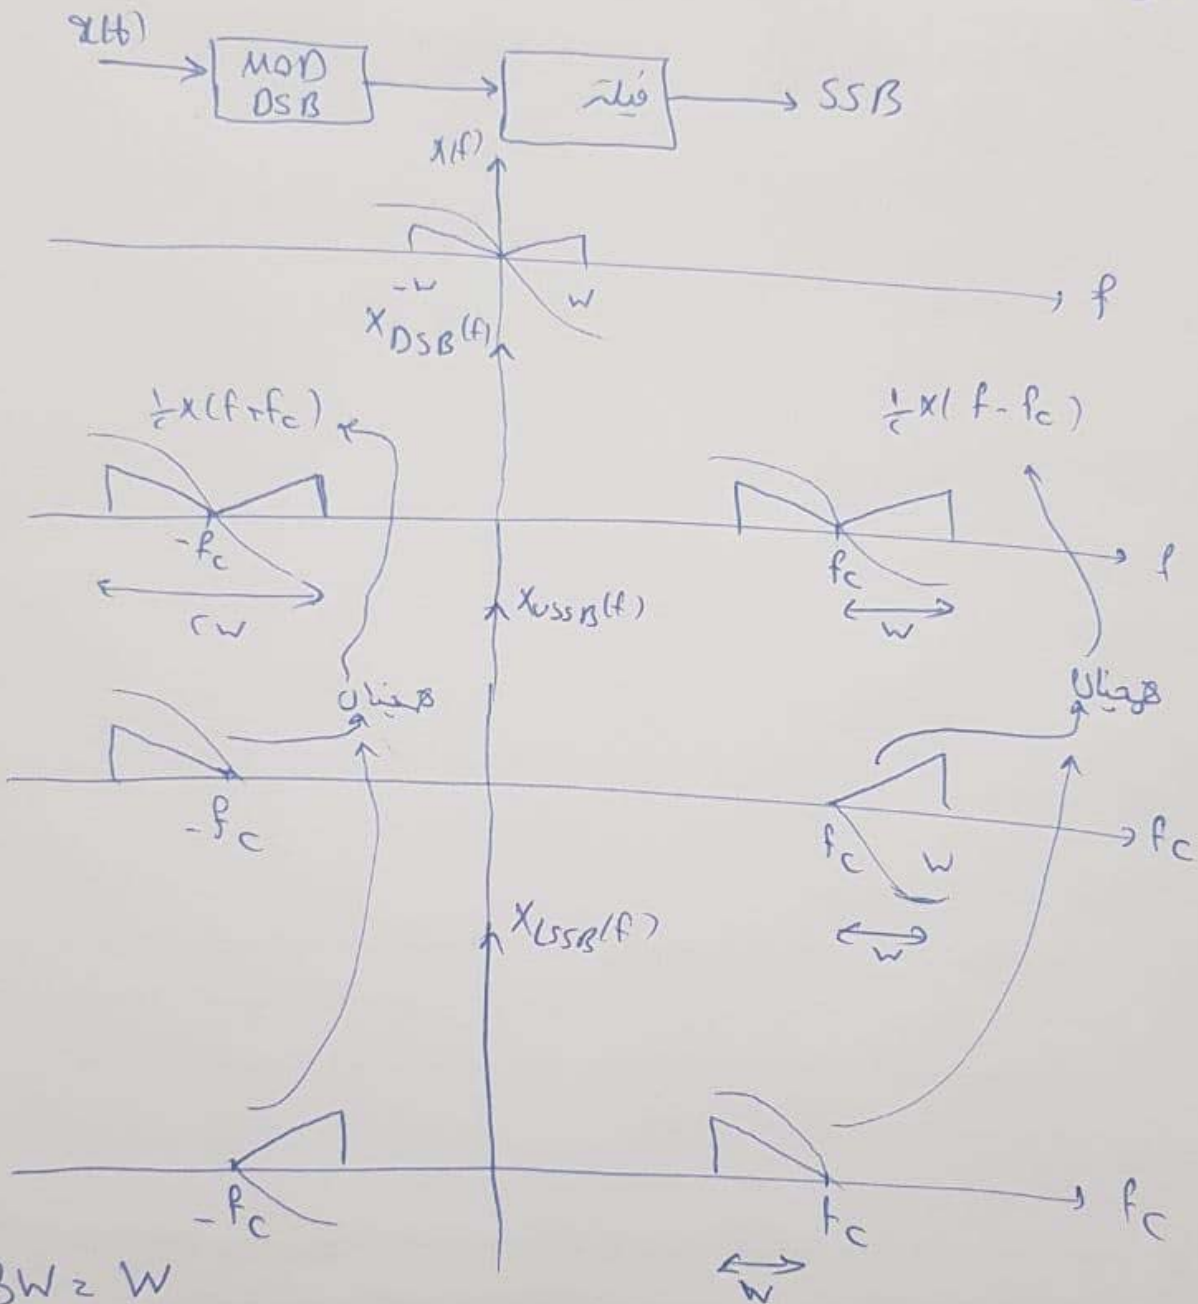 x(t)
MOD
DSB
فیلتر
SSB
X(f)
-W
W
f
X DSB (f)
½X(f+fc)
½X(f-fc)
-fc
fc
f
۲W
W
X USSB (f)
همچنان
همچنان
-fc
fc
W
fc
W
X LSSB (f)
-fc
fc
fc
W
BW = W